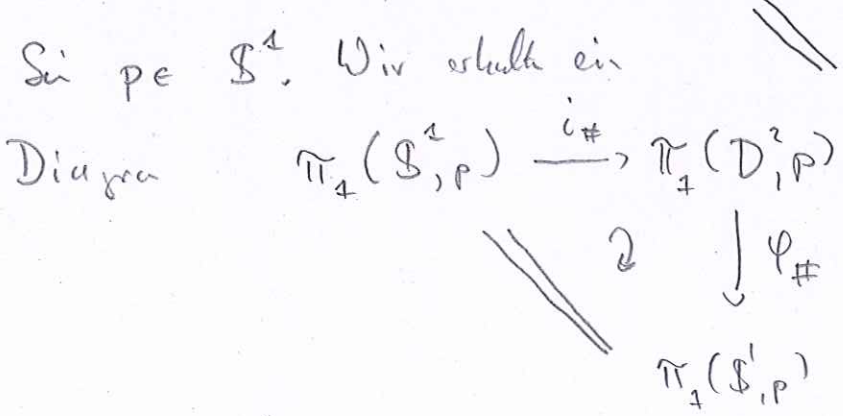 Sei p ∈ $𝕊^1$. Wir erhalte ein
Diagra $\pi_1(𝕊^1, p) \xrightarrow{i_\#} \pi_1(D^2, p)$
↻ ↓ $\varphi_\#$
$\pi_1(𝕊^1, p)$